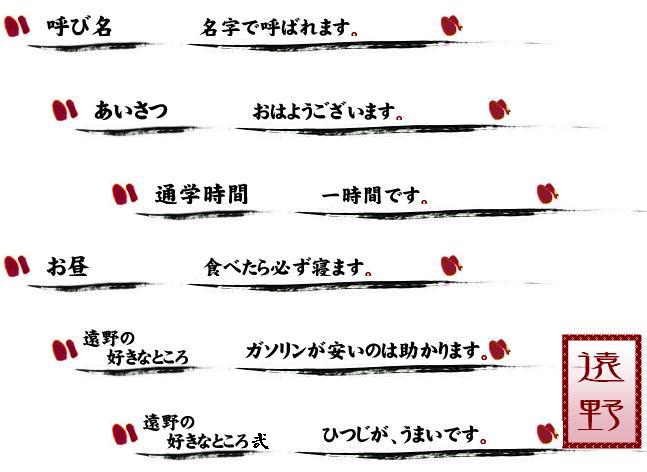 呼び名 名字で呼ばれます。
あいさつ おはようございます。
通学時間 一時間です。
お昼 食べたら必ず寝ます。
遠野の
好きなところ ガソリンが安いのは助かります。
遠野の
好きなところ 弐 ひつじが、うまいです。
遠
野